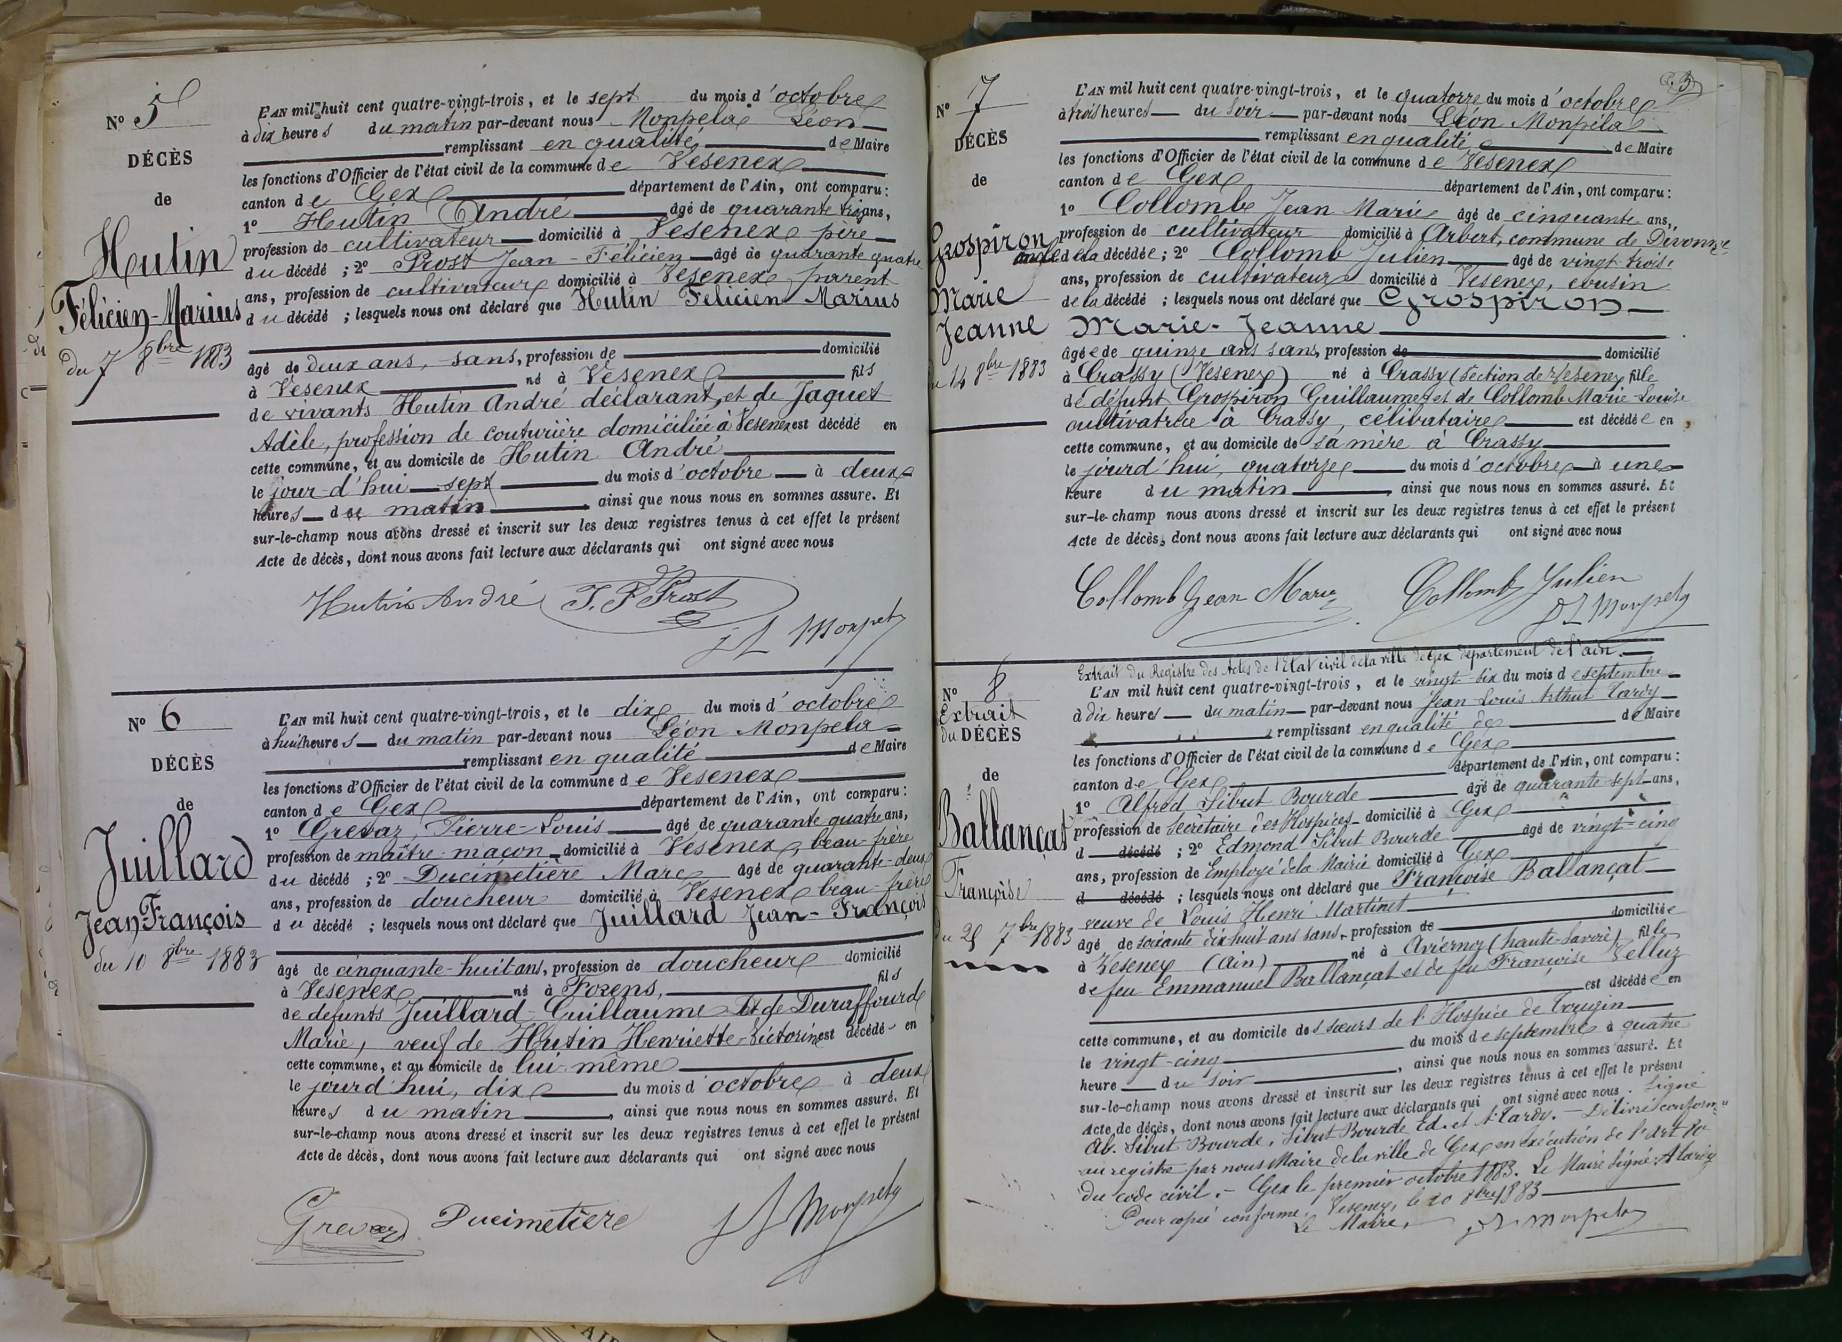 N° 5
DÉCÈS
de
Hutin
Félicien-Marius
du 7 8bre 1883
L'AN mil huit cent quatre-vingt-trois, et le sept du mois d'octobre
à dix heures du matin par-devant nous Monpela Léon
remplissant en qualité de Maire
les fonctions d'Officier de l'état civil de la commune de Vesenex
canton de Gex département de l'Ain, ont comparu :
1° Hutin André âgé de quarante trois ans,
profession de cultivateur domicilié à Vesenex père
du décédé ; 2° Prost Jean-Félicien âgé de quarante quatre
ans, profession de cultivateur domicilié à Vesenex parent
du décédé ; lesquels nous ont déclaré que Hutin Félicien Marius
âgé de deux ans, sans, profession de domicilié
à Vesenex né à Vesenex fils
de vivants Hutin André déclarant, et de Jaquet
Adèle, profession de couturière domiciliée à Vesenex est décédé en
cette commune, et au domicile de Hutin André
le jour-d'hui sept du mois d'octobre à deux
heures du matin, ainsi que nous nous en sommes assuré. Et
sur-le-champ nous avons dressé et inscrit sur les deux registres tenus à cet effet le présent
Acte de décès, dont nous avons fait lecture aux déclarants qui ont signé avec nous
Hutin André J. F. Prost
J L Monpela
N° 6
DÉCÈS
de
Juillard
Jean François
du 10 8bre 1883
L'AN mil huit cent quatre-vingt-trois, et le dix du mois d'octobre
à huit heures du matin par-devant nous Léon Monpela
remplissant en qualité de Maire
les fonctions d'Officier de l'état civil de la commune de Vesenex
canton de Gex département de l'Ain, ont comparu :
1° Grevaz, Pierre-Louis âgé de quarante quatre ans,
profession de maître-maçon domicilié à Vesenex, beau-frère
du décédé ; 2° Ducimetière Marc âgé de quarante-deux
ans, profession de doucheur domicilié à Vesenex beau-frère
du décédé ; lesquels nous ont déclaré que Juillard Jean-François
âgé de cinquante-huit ans, profession de doucheur domicilié
à Vesenex né à Forens, fils
de défunts Juillard Guillaume et de Duraffourd
Marie, veuf de Hutin Henriette-Victorine est décédé en
cette commune, et au domicile de lui-même
le jourd'hui, dix du mois d'octobre à deux
heures du matin, ainsi que nous nous en sommes assuré. Et
sur-le-champ nous avons dressé et inscrit sur les deux registres tenus à cet effet le présent
Acte de décès, dont nous avons fait lecture aux déclarants qui ont signé avec nous
Grevaz Ducimetière J L Monpela
N° 7
DÉCÈS
de
Grospiron
Marie
Jeanne
du 14 8bre 1883
L'AN mil huit cent quatre-vingt-trois, et le quatorze du mois d'octobre
à trois heures du soir par-devant nous Léon Monpéla
remplissant en qualité de Maire
les fonctions d'Officier de l'état civil de la commune de Vesenex
canton de Gex département de l'Ain, ont comparu :
1° Collomb Jean Marie âgé de cinquante ans,
profession de cultivateur domicilié à Arbert, commune de Divonne
oncle de la décédée ; 2° Collomb Julien âgé de vingt-trois
ans, profession de cultivateur domicilié à Vesenex, cousin
de la décédé ; lesquels nous ont déclaré que Grospiron
Marie-Jeanne
âgée de quinze ans sans, profession de domicilié
à Crassy (Vesenex) né à Crassy (section de Vesenex fille
de défunt Grospiron Guillaume, et de Collomb Marie-Louise
cultivatrice à Crassy, célibataire est décédée en
cette commune, et au domicile de sa mère à Crassy
le jourd'hui, quatorze du mois d'octobre à une
heure du matin, ainsi que nous nous en sommes assuré. Et
sur-le-champ nous avons dressé et inscrit sur les deux registres tenus à cet effet le présent
Acte de décès, dont nous avons fait lecture aux déclarants qui ont signé avec nous
Collomb Jean Marie Collomb Julien
J L Monpela
N° 8
Extrait
du DÉCÈS
de
Ballançat
Françoise
du 25 7bre 1883
Extrait du Registre des Actes de l'Etat civil de la ville de Gex département de l'ain.
L'AN mil huit cent quatre-vingt-trois, et le vingt-six du mois de septembre
à dix heures du matin par-devant nous Jean Louis Arthur Tardy
remplissant en qualité de de Maire
les fonctions d'Officier de l'état civil de la commune de Gex
canton de Gex département de l'Ain, ont comparu :
1° Alfred Sibut Bourde âgé de quarante-sept ans,
profession de secrétaire des Hospices domicilié à Gex
d décédé ; 2° Edmond Sibut Bourde âgé de vingt-cinq
ans, profession de Employé de la Mairie domicilié à Gex
d décédé ; lesquels nous ont déclaré que Françoise Ballançat
veuve de Louis Henri Martinet
âgé de soixante dix huit ans sans, profession de domiciliée
à Vesenex (Ain) né à Aviernoz (haute-Savoie) fille
de feu Emmanuel Ballançat et de feu Françoise Velluz
est décédée en
cette commune, et au domicile des sœurs de l'Hospice de Tougin
le vingt-cinq du mois de septembre à quatre
heure du soir, ainsi que nous nous en sommes assuré. Et
sur-le-champ nous avons dressé et inscrit sur les deux registres tenus à cet effet le présent
Acte de décès, dont nous avons fait lecture aux déclarants qui ont signé avec nous. Signé
Ab. Sibut Bourde, Sibut Bourde Ed. et A. Tardy. — Délivré conforme
au registre par nous Maire de la ville de Gex en exécution de l'art 80
du code civil. — Gex le premier octobre 1883. Le Maire Signé: A tardy
Pour copie conforme, Vesenex, le 20 8bre 1883
Le Maire, J L Monpela